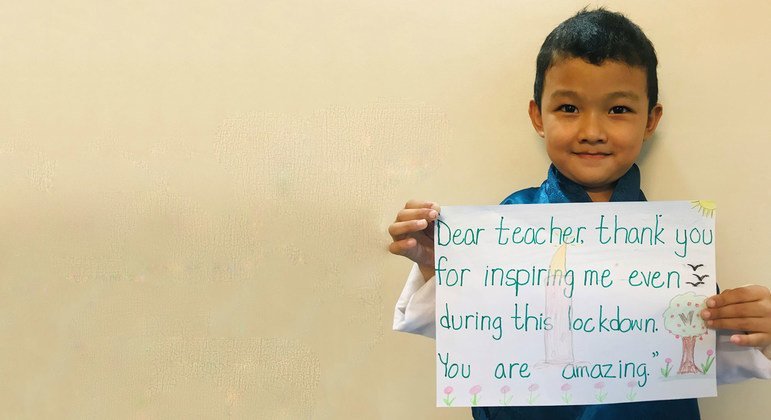 Dear teacher, thank you
for inspiring me even
during this lockdown.
You are amazing."